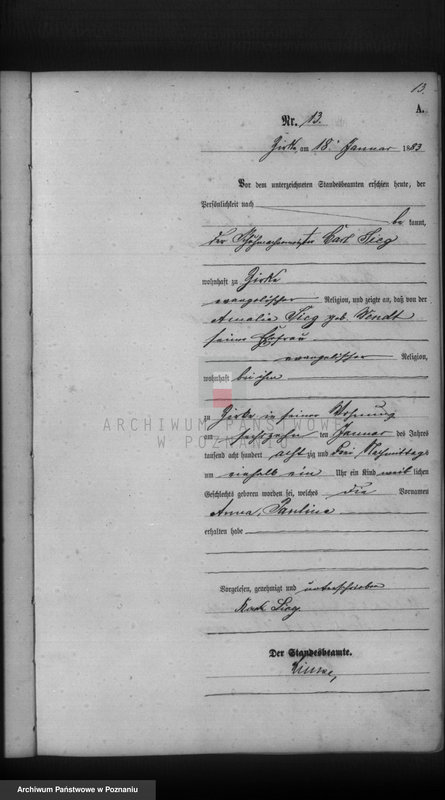 13.
A.
Nr. 13.
Zirke, am 18. Januar 1883
Vor dem unterzeichneten Standesbeamten erschien heute, der
Persönlichkeit nach
be kannt,
der Carl Sieg
wohnhaft zu Zirke
evangelischer Religion, und zeigte an, daß von der
Amalie Sieg geb. Wendt
seiner Ehefrau
evangelischer Religion,
wohnhaft bei ihm
zu Zirke in seiner Wohnung
am sechszehn ten Januar des Jahres
tausend acht hundert acht zig und drei Nachmittags
um ein Uhr ein Kind weib lichen
Geschlechts geboren worden sei, welches die Vornamen
Anna, Pauline
erhalten habe
Vorgelesen, genehmigt und unterschrieben
Karl Sieg.
Der Standesbeamte.
ARCHIWUM PAŃSTWOWE
W POZNANIU
Archiwum Państwowe w Poznaniu